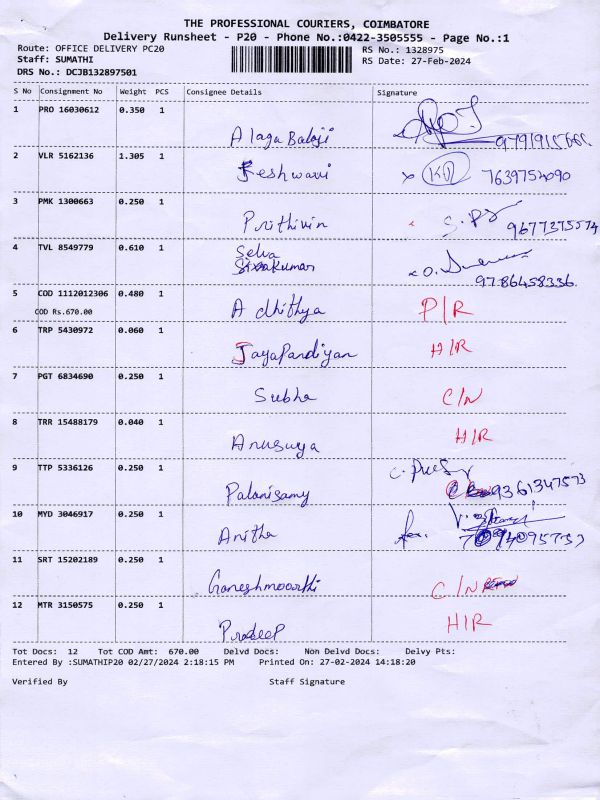 THE PROFESSIONAL COURIERS, COIMBATORE
Delivery Runsheet - P20 - Phone No.:0422-3505555 - Page No.:1
Route: OFFICE DELIVERY PC20 RS No.: 1328975
Staff: SUMATHI RS Date: 27-Feb-2024
DRS No.: DCJB132897501
S No Consignment No Weight PCS Consignee Details Signature
1 PRO 16030612 0.350 1
Alaga Balaji
2 VLR 5162136 1.305 1
Jeshwavi x KP 7639754090
3 PMK 1300663 0.250 1
Prithivin x S.P 9677375574
4 TVL 8549779 0.610 1 Selva
Sivakumar
9786458336.
5 COD 1112012306 0.480 1
COD Rs.670.00 Adhithya P/R
6 TRP 5430972 0.060 1
JayaPandiyan H/R
7 PGT 6834690 0.250 1
Subha C/N
8 TRR 15488179 0.040 1
Anusuya H/R
9 TTP 5336126 0.250 1
Palanisamy 9361347573
10 MYD 3046917 0.250 1
Anitha
11 SRT 15202189 0.250 1
Ganeshmoorthi C/N
12 MTR 3150575 0.250 1
Pradeep H/R
Tot Docs: 12 Tot COD Amt: 670.00 Delvd Docs: Non Delvd Docs: Delvy Pts:
Entered By :SUMATHIP20 02/27/2024 2:18:15 PM Printed On: 27-02-2024 14:18:20
Verified By Staff Signature